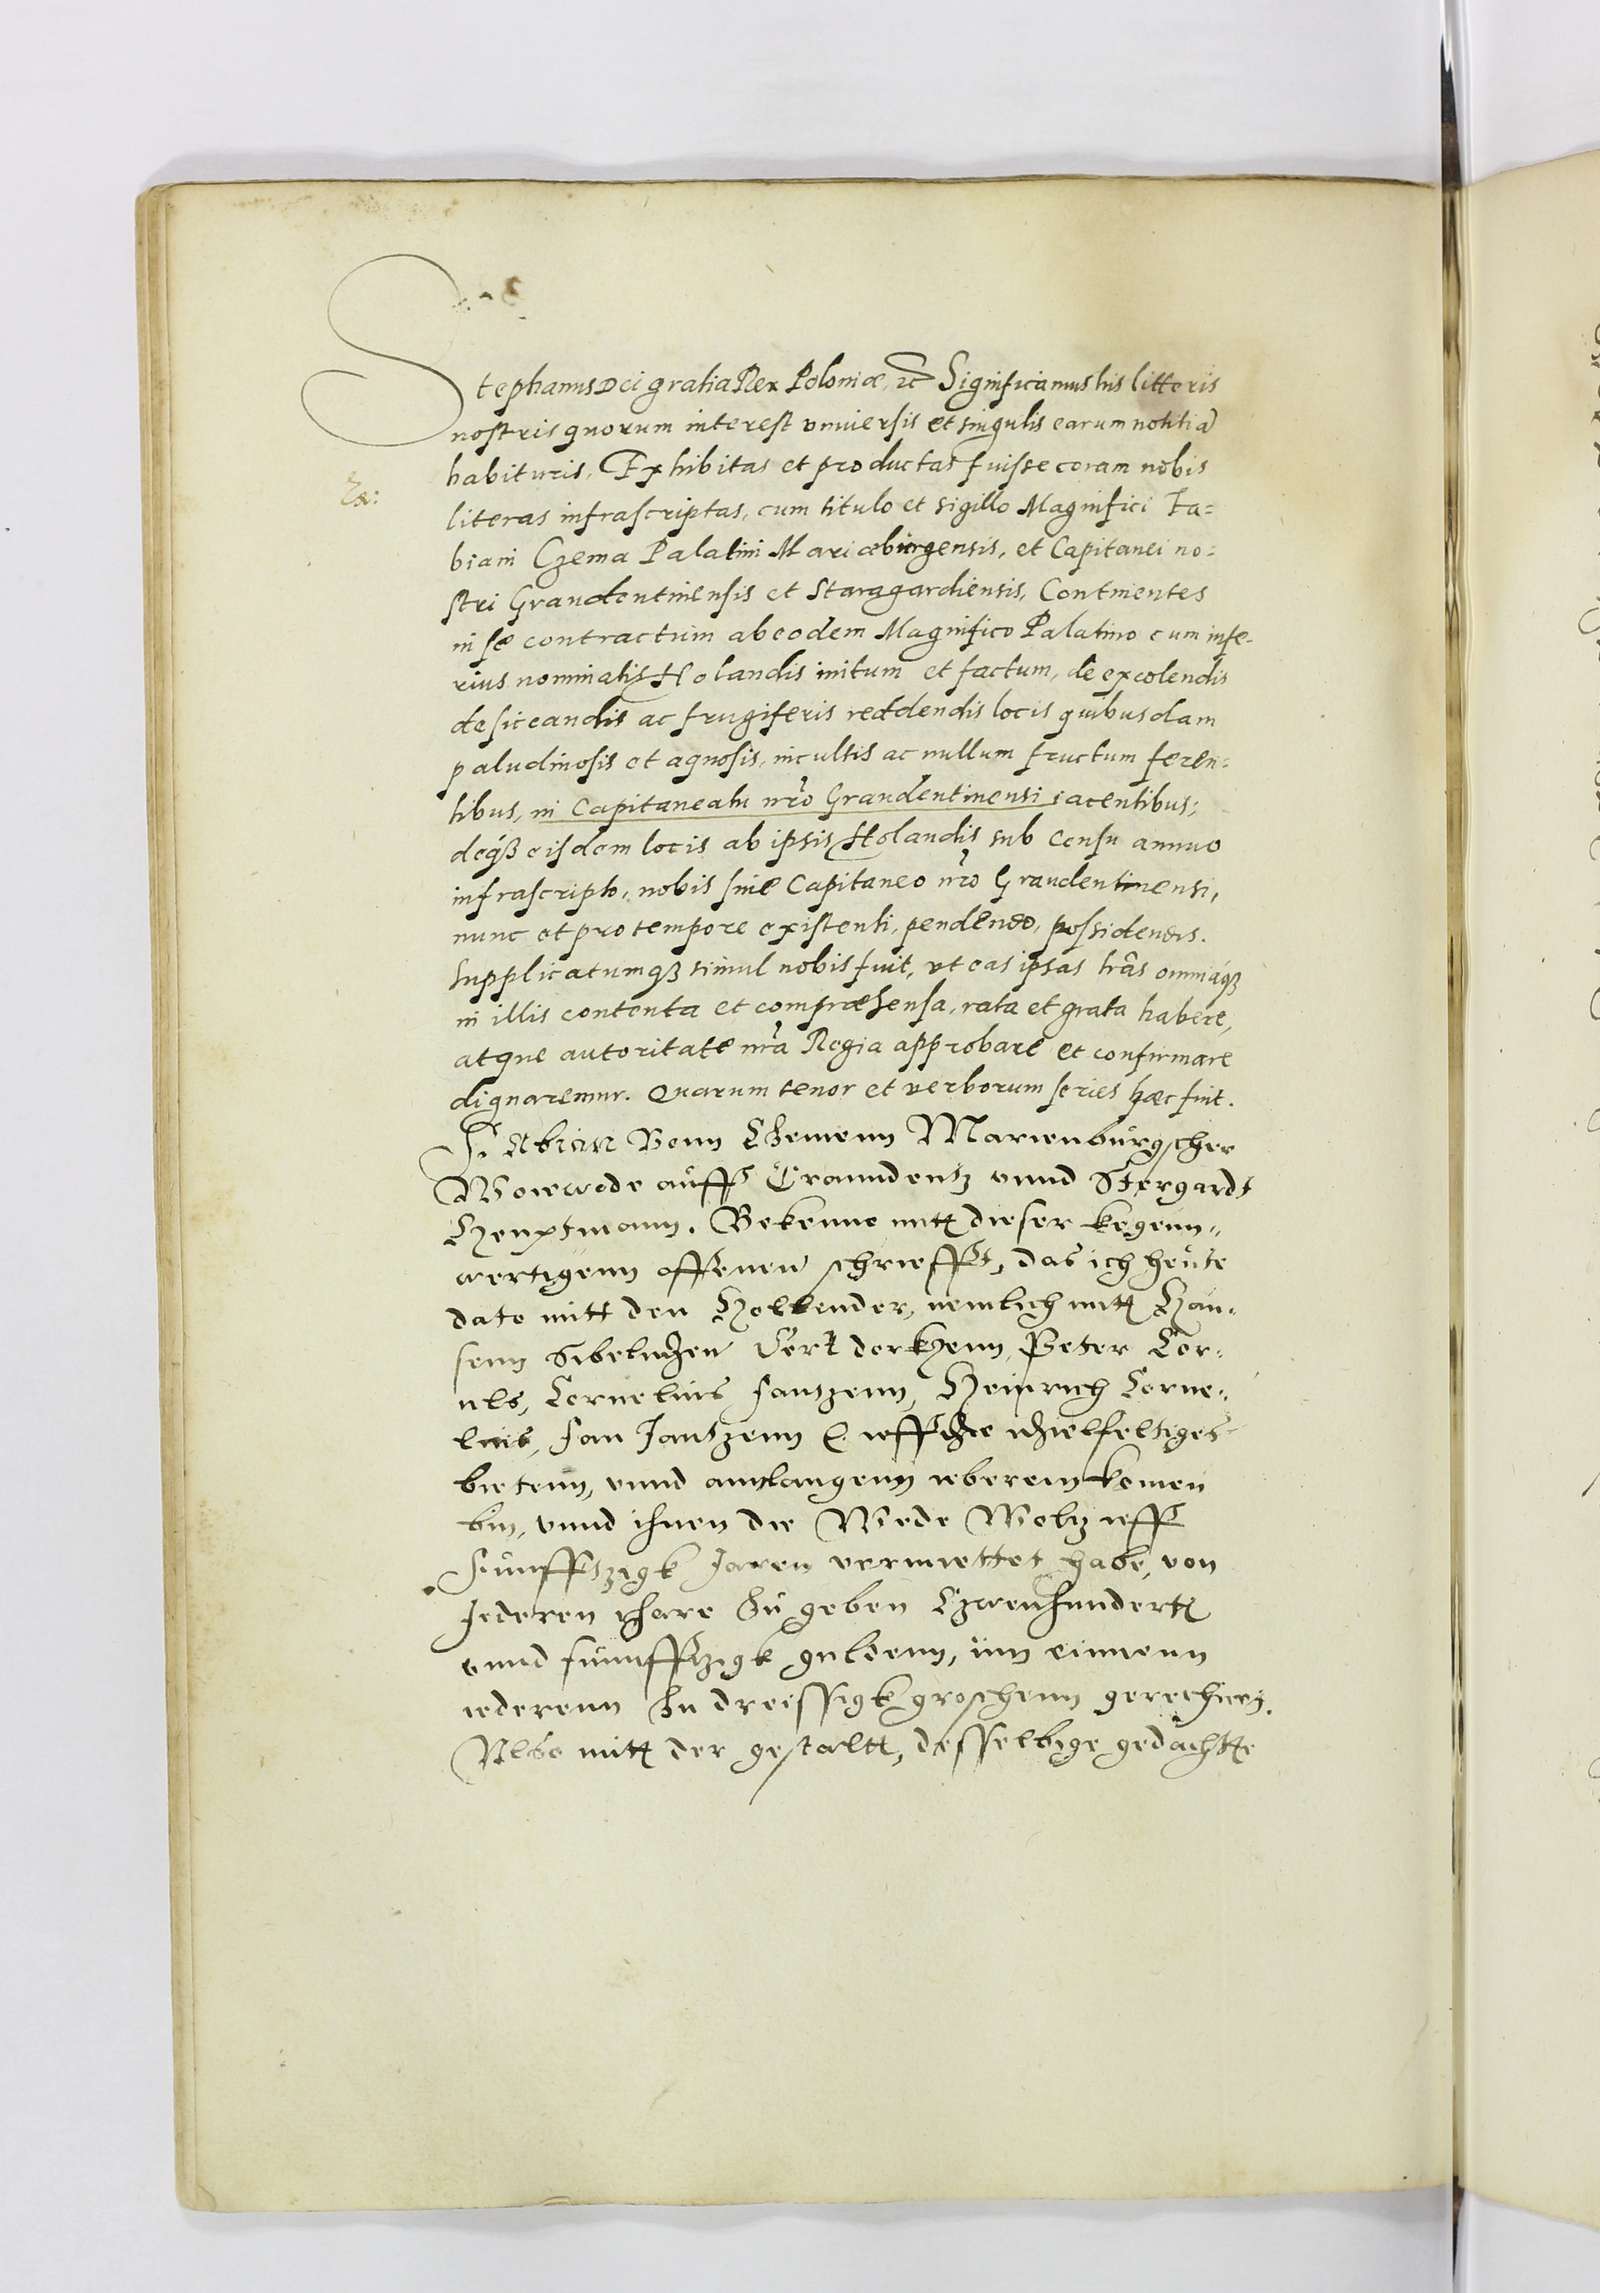 Stephanus Dei gratia Rex Poloniæ, ꝛc Significamus his litteris
nostris quorum interest vniuersis et singulis earum notitiã
habituris, Exhibitas et productas fuisse coram nobis
literas infrascriptas, cum titulo et sigillo Magnifici Fa=
biani Czema Palatini Mariæburgensis, et Capitanei no=
stri Graudentinensis et Staragardiensis, Continentes
in se contractum ab eodem Magnifico Palatino cum infe=
rius nominatis Holandis initum et factum, de excolendis
desiccandis ac frugiferis reddendis locis quibusdam
paludinosis et aquosis, incultis ac nullum fructum feren=
tibus, in Capitaneatu nr̃o Graudentinensi iacentibus;
deq́ꝫ eisdem locis ab ipsis Holandis sub censu annuo
infrascripto, nobis siue Capitaneo nr̃o Graudentinensi,
nunc et pro tempore existenti, pendendo, possidendis.
Supplicatumqꝫ simul nobis fuit, vt eas ipsas lr̃as omniaq́ꝫ
in illis contenta et compræhensa, rata et grata habere,
atque autoritate nr̃a Regia approbare et confirmare
dignaremur. Quarum tenor et verborum series hæc fuit.
Fabian Vonn Czemenn Marienburgscher
Woiewode auff Graundentz vnnd Stergardt
Heuptmann. Bekenne mitt dieser kegenn=
wertigenn offenen schriefft, das ich heute
dato mitt den Hollender, nemlich mitt Han=
senn Peter Cor=
nels, Cornelius Jantzenn, Heinrich Corne=
lius, Jan Jantzenn
bietenn, vnnd annlangenn ueberein komen
bin, vnnd ihnen die Wede Woltz uff
funfftzigk Jaren vermiettet habe, von
Jederen Jhare zu geben Czweyhundertt
vnnd funfftzigk guldenn, inn einnenn
iederenn zu dreissigk groschenn gerechnet.
Also mitt der gestaltt, desselbige gedachtte